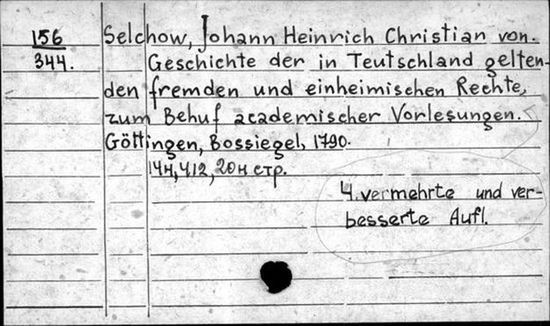 156
344.
Selchow, Johann Heinrich Christian von.
Geschichte der in Teutschland gelten-
den fremden und einheimischen Rechte,
zum Behuf academischer Vorlesungen.
Göttingen, Bossiegel, 1790.
14н, 412, 20н стр.
4. vermehrte und ver-
besserte Aufl.